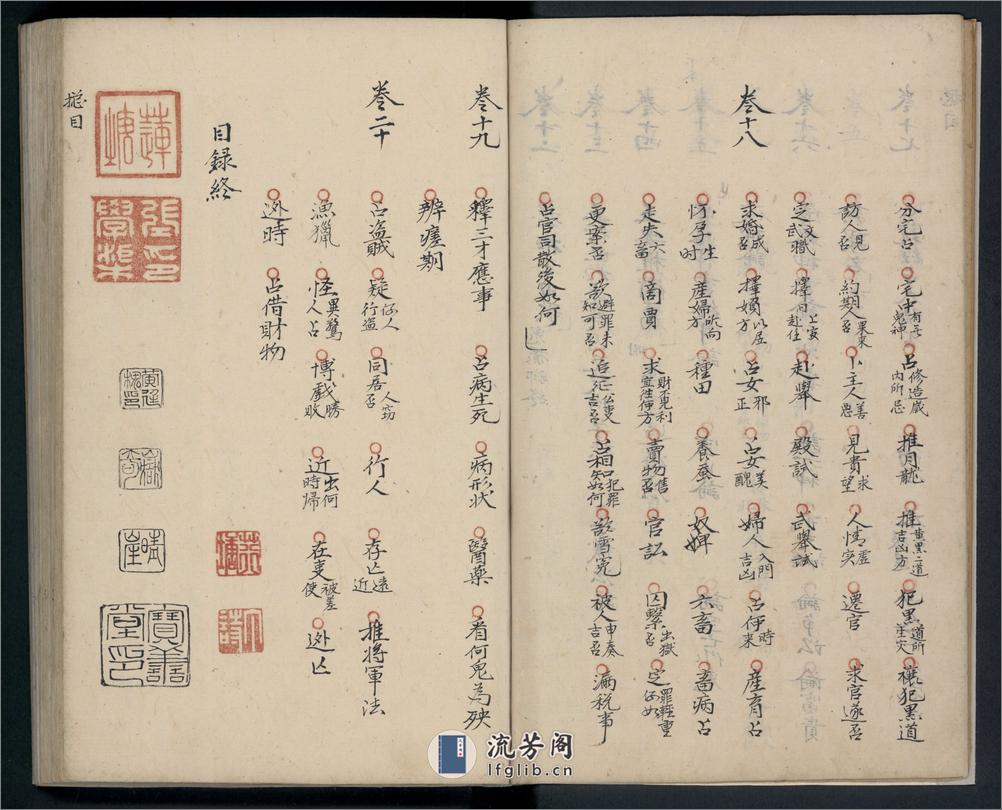 分宅占 宅中有無鬼神 占修造威内所忌 推月龍 推黄黒二道吉凶方 犯黒道所主灾 禳犯黒道
訪人見否 約期人果来否 卜主人善惡 見貴求望 人情虚实 遷官 求官遂否
定文武職 擇向上安赴任 赴舉 殿試 武舉試
卷十八 求婚成否 擇婚以居方 占女邪正 占女美醜 婦人入門吉凶 占伊時来 産育占
怀孕生时 産婦所向方 種田 養蚕 奴婢 六畜 畜病占
走失六畜 商賈 求財不見利宜往何方 賣物售否 官訟 囚繫出獄否 定罪輕重何如
更案否 欲避罪未知可否 追死公吏吉否 占相知犯罪如何 欲雪冤 被人申奏吉否 漏税事
占官司散後如何
卷十九 釋三才應事 占病生死 病形状 醫藥 看何鬼為殃
辨瘥期
卷二十 占盗賊 疑何人行盗 同居人窃否 行人 存亡遠近 推將軍法
漁獵 怪異驚人占 博戲勝敗 近出何時歸 在吏被差使 逃亡
逃時 占借財物
目録終
總目
寶善堂印
流芳阁
lfglib.cn